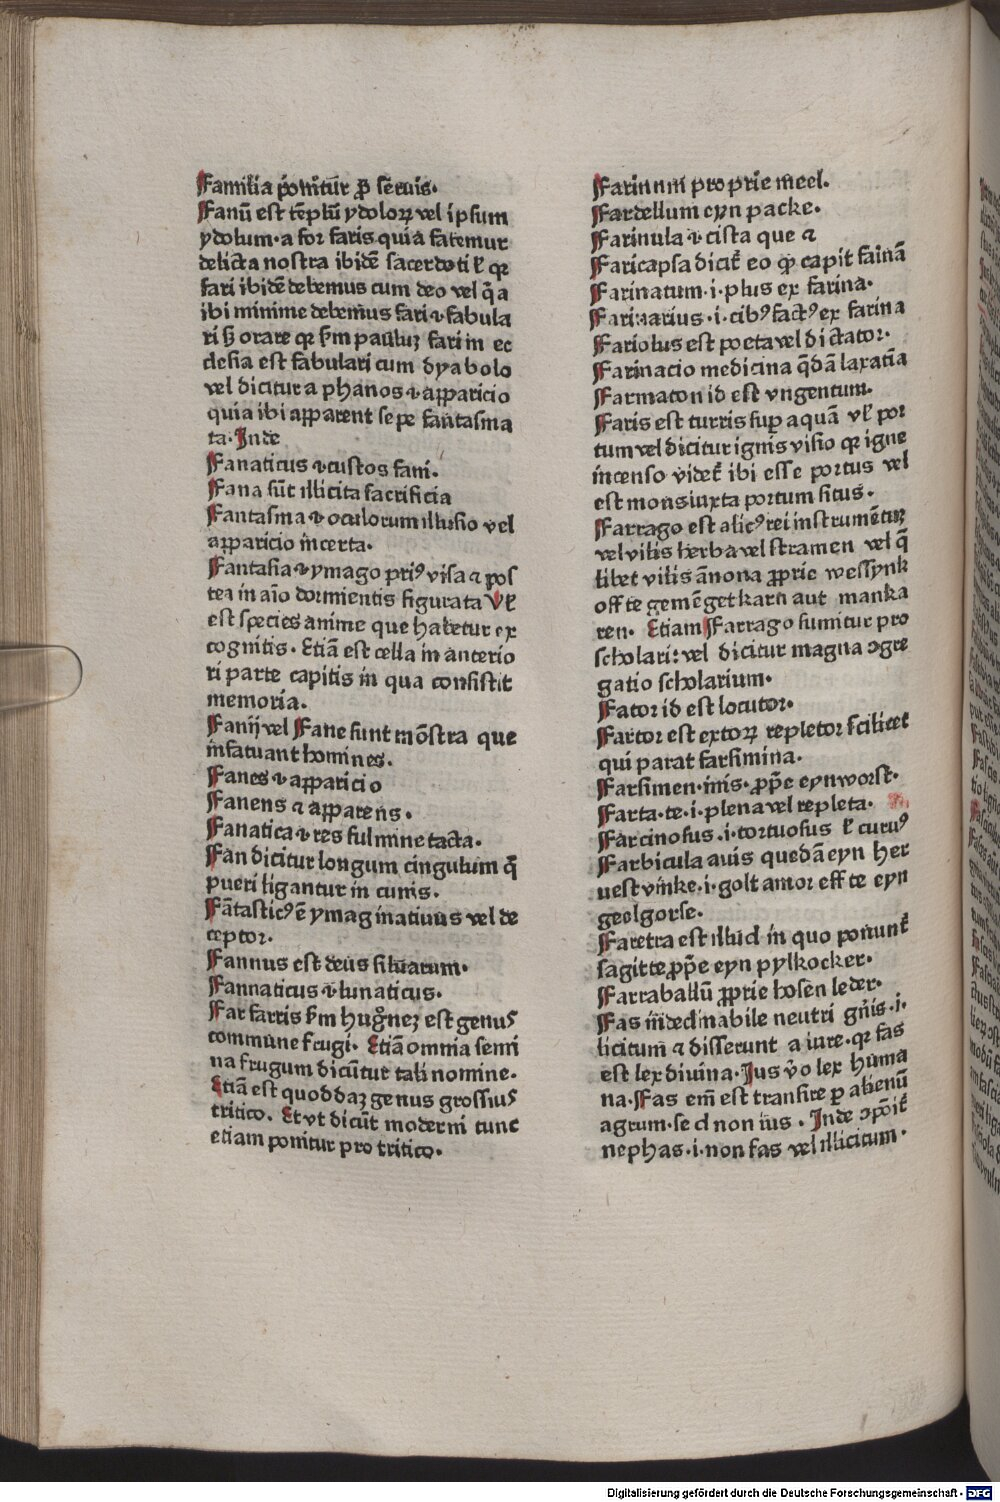 Familia ponitur ꝓ seruis.
Fanū est tēplū ydoloꝝ vel ipsum
ydolum. a for faris quia fatemur
delicta nostra ibidē sacerdoti ł qꝛ
fari ibidē debemus cum deo vel q̄a
ibi minime debemus fari ⁊ fabula
ri sꝫ orare qꝛ ẜm pauluꝫ fari in ec
clesia est fabulari cum dyabolo
vel dicitur a phanos ⁊ aꝑparicio
quia ibi aꝑparent sepe fantasma
ta. Inde
Fanaticus ⁊ custos fani.
Fana sūt illicita sacrificia
Fantasma ⁊ oculorum illusio vel
aꝑparicio incerta.
Fantasia ⁊ ymago priꝰ visa ⁊ pos
tea in aīo dormientis figurata Vł
est species anime que habetur ex
cognitis. Etiā est cella in anterio
ri parte capitis in qua consistit
memoria.
Fanij vel Fane sunt mōstra que
infatuant homines.
Fanes ⁊ aꝑparicio
Fanens ⁊ apparens.
Fanatica ⁊ res fulmine tacta.
Fan dicitur longum cingulum q̄
pueri ligantur in cunis.
Fātasticꝰ ē ymaginatiuus vel de
ceptor.
Fannus est deus siluarum.
Fannaticus ⁊ lunaticus.
Far farris ẜm hugneꝫ est genus
commune frugi. Etiā omnia semi
na frugum dicūtur tali nomine.
Etiā est quoddaꝫ genus grossius
tritico. Et vt dicūt moderni tunc
etiam ponitur pro tritico.
Farinum proprie meel.
Fardellum eyn packe.
Farinula ⁊ cista que ⁊
Faricapsa dicit᷑ eo ꝙ capit fainā
Farinatum .i. plus ex farina.
Farinarius .i. cibꝰ factꝰ ex farina
Fariolus est poeta vel dictator.
Farinacio medicina q̄dā laxatiā
Farmaton id est vngentum.
Faris est turris supꝛ aquā vł por
tum vel dicitur ignis visio qꝛ igne
incenso videt᷑ ibi esse portus vel
est mons iuxta portum situs.
Farrago est alicꝰ rei instrumētuꝫ
vel vilis herba vel stramen vel q̄
libet vilis ānona ꝓprie wessynk
offte gemēget karn aut manka
ren. Etiam Farrago sumitur pro
scholari: vel dicitur magna ꝯgre
gatio scholarium.
Fator id est locutor.
Fartor est extoꝝ repletor scilicet
qui parat farsimina.
Farsimen .inis. ꝓpe eyn worst.
Farta .te .i. plena vel repleta.
Farcinosus .i. tortuosus ł curuꝰ
Farbicula auis quedā eyn her
uest vinke .i. golt amor effte eyn
geelgorse.
Faretra est illud in quo ponunt᷑
sagitte ꝓpe eyn pylkocker.
Farraballū ꝓprie hosen leder.
Fas indeclinabile neutri gn̄is .i.
licitum ⁊ disserunt a iure. qꝛ fas
est lex diuina. Jus v̊o lex huma
na. Fas em̄ est transire ꝑ alienū
agrum. sed non ius. Inde ꝯpōit᷑
nephas .i. non fas vel illicitum.
Digitalisierung gefördert durch die Deutsche Forschungsgemeinschaft - DFG